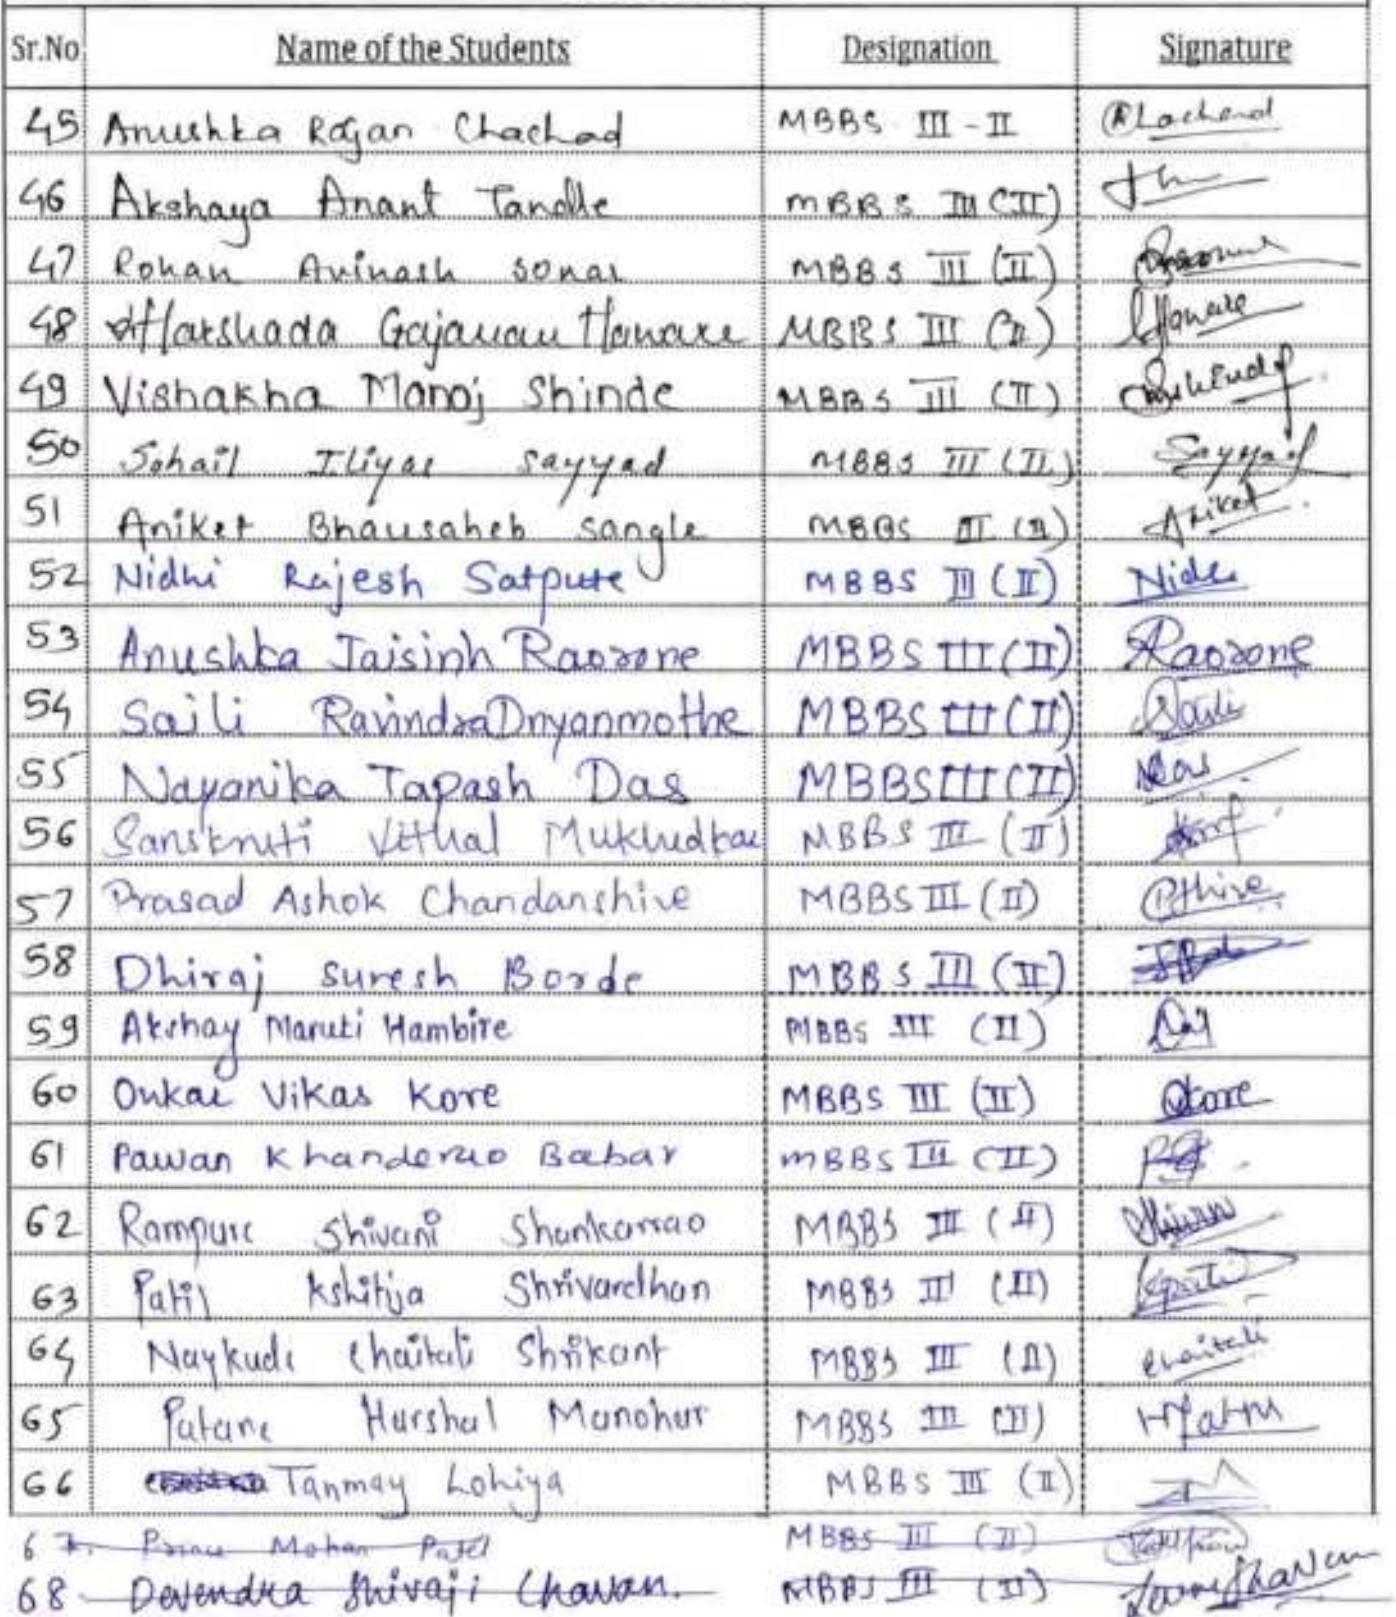 Sr.No Name of the Students Designation Signature
45 Anushka Rajan Chachad MBBS III-II Chachad
46 Akshaya Anant Tandle MBBS III (II)
47 Rohan Avinash Sonar MBBS III (II)
48 Harshada Gajanan Hanare MBBS III (II) Hanare
49 Vishakha Manoj Shinde MBBS III (II)
50 Sohail Iliyas Sayyad MBBS III (II) Sayyad
51 Aniket Bhausaheb Sangle MBBS III (II) Aniket
52 Nidhi Rajesh Satpute MBBS III (II) Nidhi
53 Anushka Jaisinh Raorane MBBS III (II) Raorane
54 Saili Ravindra Dnyanmothe MBBS III (II) Saili
55 Nayanika Tapash Das MBBS III (II) Das
56 Sanskruti Vithal Mukhedkar MBBS III (II)
57 Prasad Ashok Chandanshive MBBS III (II)
58 Dhiraj Suresh Borde MBBS III (II)
59 Akshay Maruti Hambire MBBS III (II)
60 Onkar Vikas Kore MBBS III (II) Okore
61 Pawan Khanderao Babar MBBS III (II)
62 Rampure Shivani Shankarrao MBBS III (II)
63 Patil Kshitija Shrivardhan MBBS III (II)
64 Naykude Chaitali Shrikant MBBS III (II) Chaitali
65 Patane Harshal Manohar MBBS III (II)
66 Tanmay Lohiya MBBS III (II)
67. Mohan Patil MBBS III (II)
68 Devendra Shivaji Chavan. MBBS III (II)